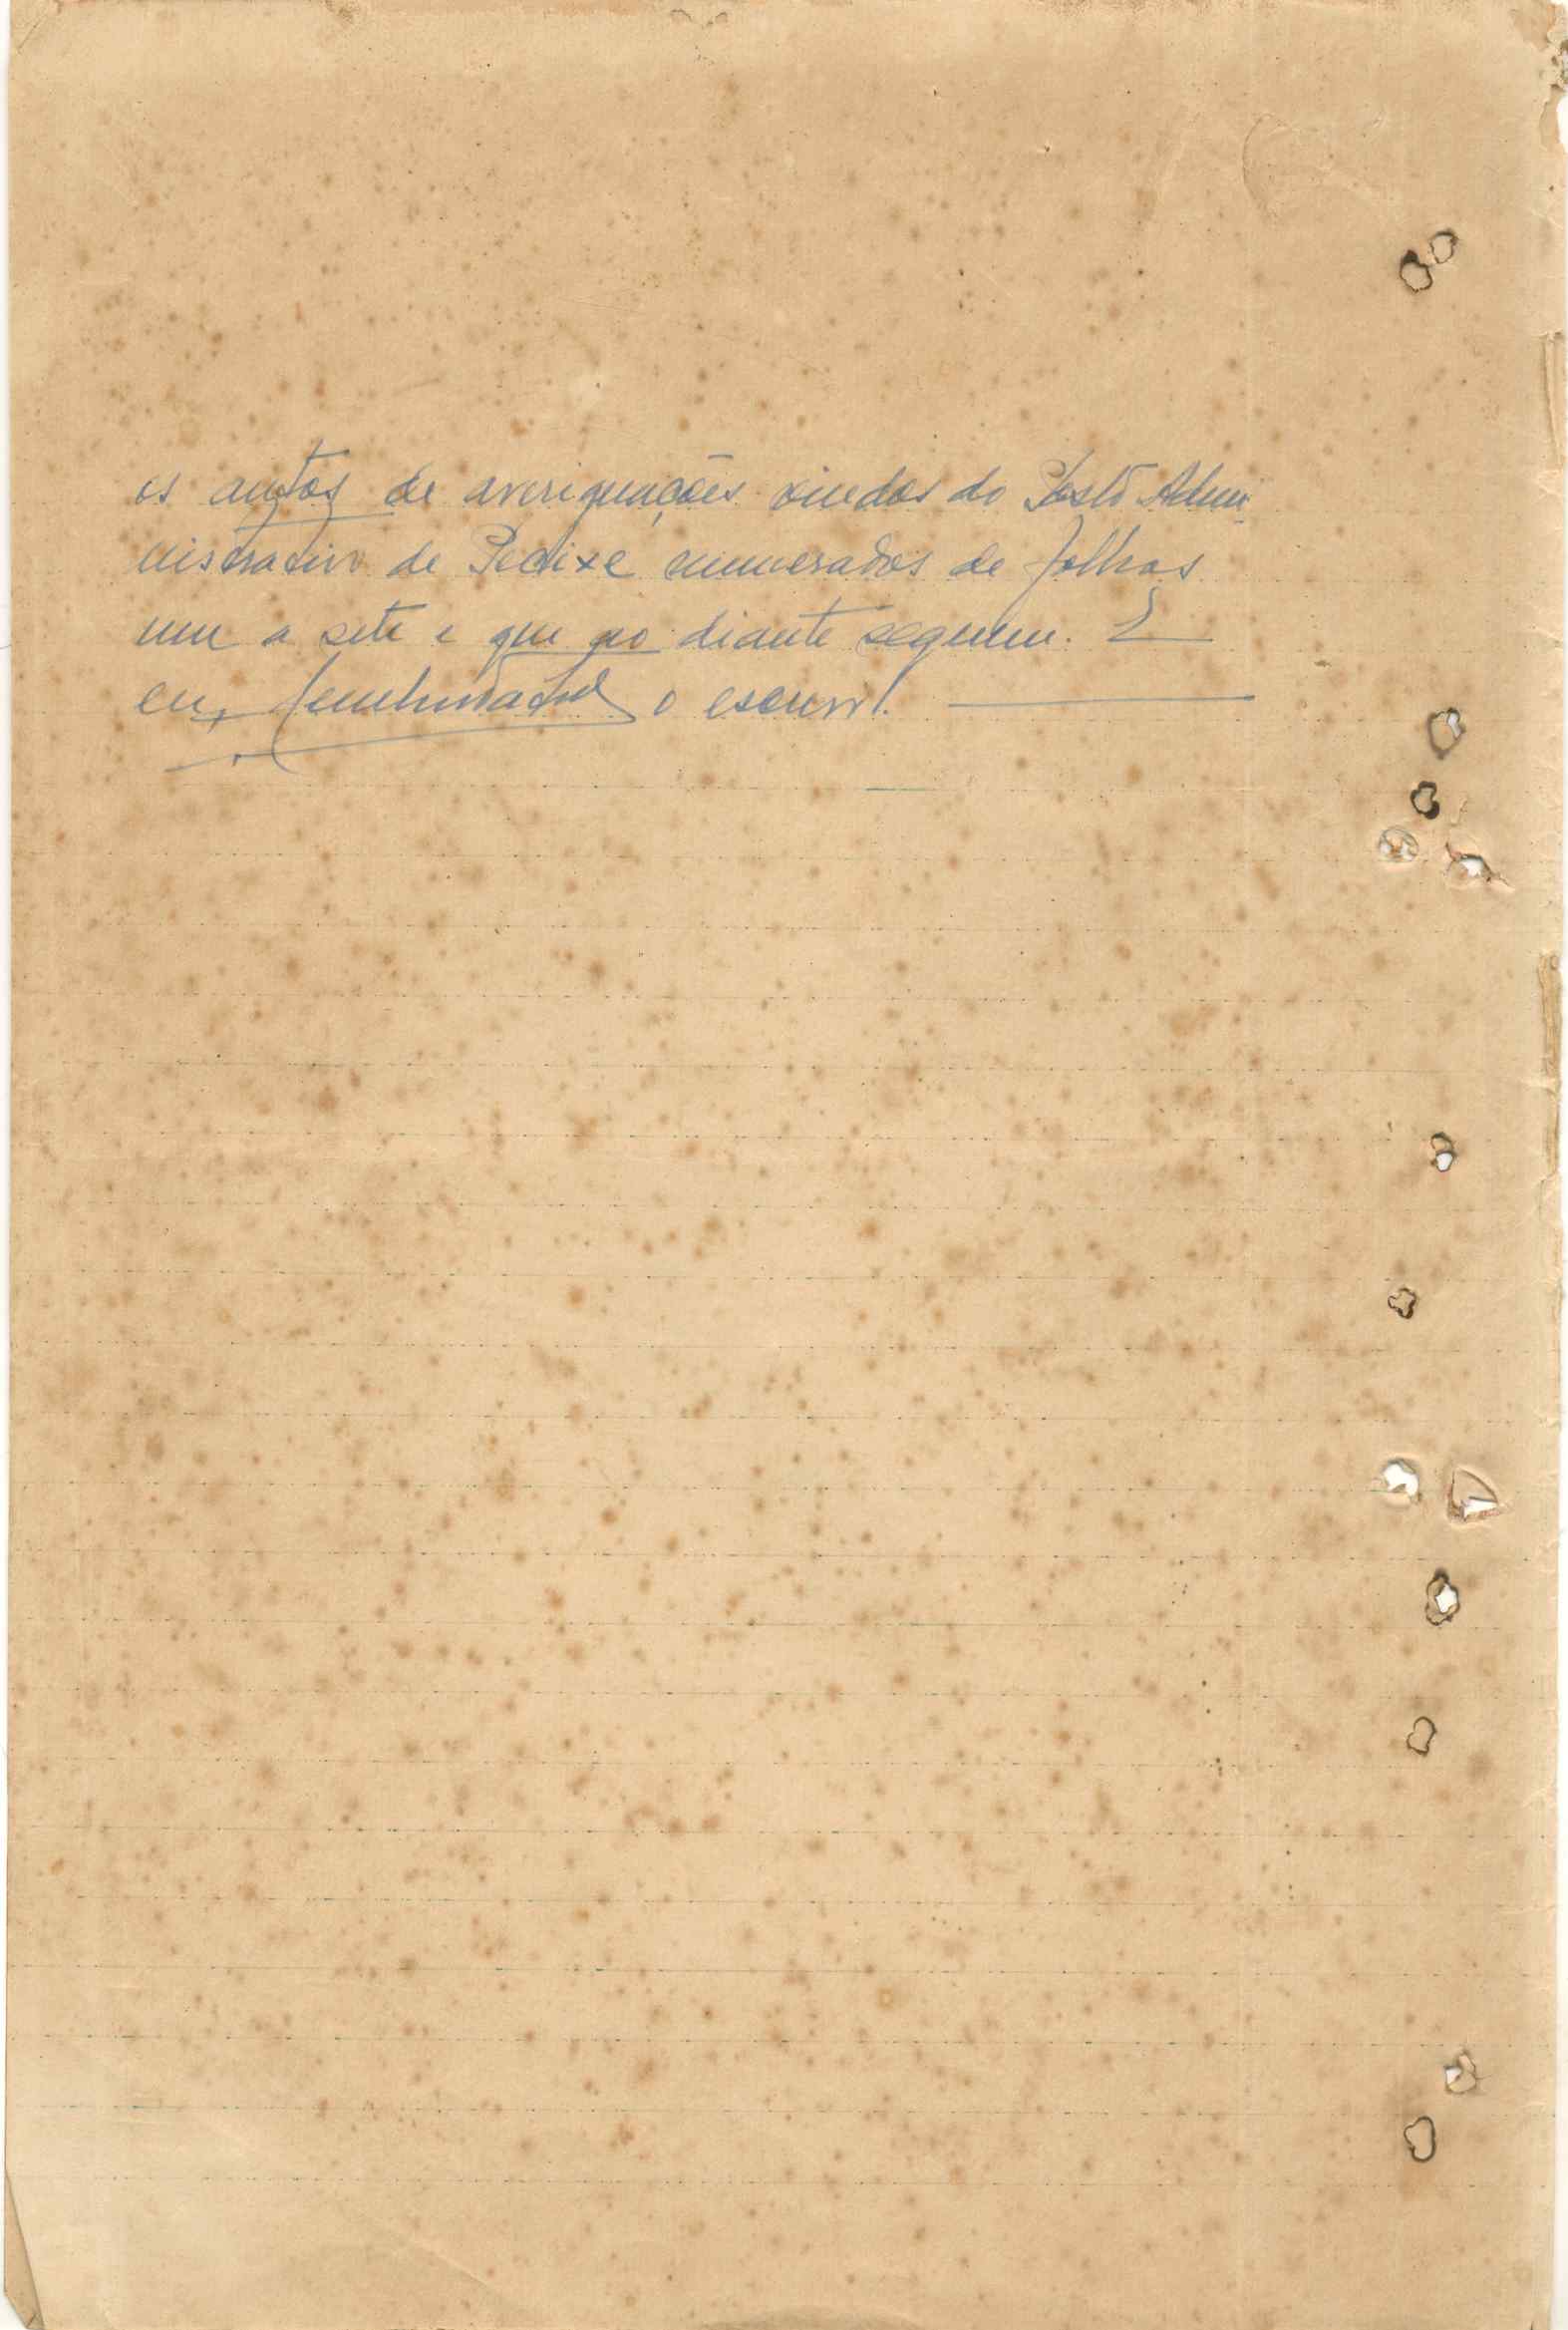 os autos de averiguações vindos do Posto Admi-
nistrativo de Pecixe numerados de folhas
um a sete e que ao diante seguem. E
eu, o escrevi.